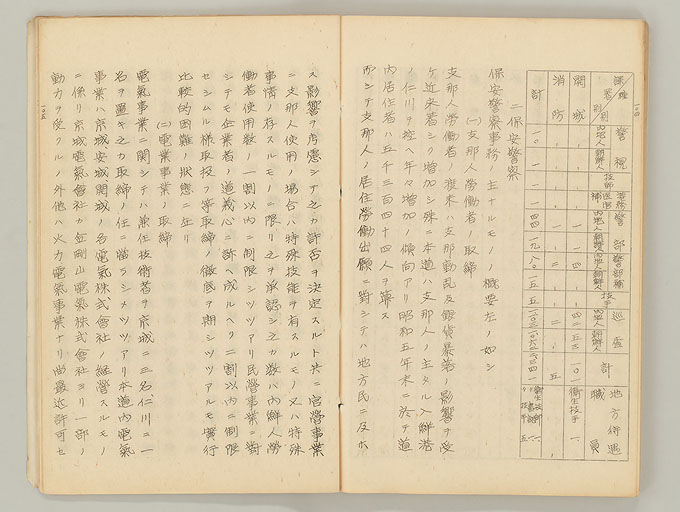 一〇四
課種
署別
別
警視
技師
警務補
医
警部
警部補
技手
巡査
計
地方待遇職員
内地人
朝鮮人
開城
消防
計
衛生技手
二 保安警察
保安警察事務ノ主ナルモノノ概要左ノ如シ
(一)支那人勞働者ノ取締
支那人勞働者ノ渡来ハ支那動乱及銀貨暴落ノ影響ヲ受
ケ近来著シク増加シ殊ニ本道ハ支那人ノ主タル入鮮港
ノ仁川ヲ控ヘ年々増加ノ傾向アリ昭和五年末ニ於テ道
内居住者ハ五千三百四十四人ヲ算ス
而シテ支那人ノ居住勞働出願ニ對シテハ地方民ニ及ホ
ス影響ヲ考慮シテ之カ許否ヲ決定スルト共ニ官營事業
ニ支那人使用ノ場合ハ特殊技能ヲ有スルモノ又ハ特殊
事情ノ存スルモノニ限リ之ヲ承認シ之カ數ハ内鮮人勞
働者使用數ノ一割以内ニ制限シツツアリ民營事業ニ對
シテモ企業者ノ道義心ニ訴ヘ成ルヘク二割以内ニ制限
セシムル様取扱フ等取締ノ徹底ヲ期シツツアルモ實行
比較的困難ノ状態ニ在リ
(二)電氣事業ノ取締
電氣事業ニ関シテハ兼任技術者ヲ京城ニ三名仁川ニ一
名ヲ置キ之カ取締ノ任ニ當ラシメツツアリ本道内電氣
事業ハ京城安城開城ノ各電氣株式會社ノ經營スルモノ
ニ係リ京城電氣會社カ金剛山電氣株式會社ヨリ一部ノ
動力ヲ受クルノ外他ハ火力電氣事業ナリ尚最近許可セ
一〇五